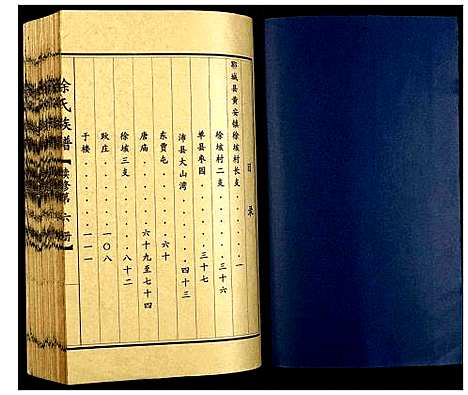 目录
郓城县黄安镇徐垓村长支........一
徐垓村二支......三十六
单县枣四........三十七
沛县大山湾......四十三
东贾屯..........六十
唐庙............六十九至七十四
徐垓三支........八十二
政庄............一〇八
于楼............一一一
徐氏族谱【续修第六册】